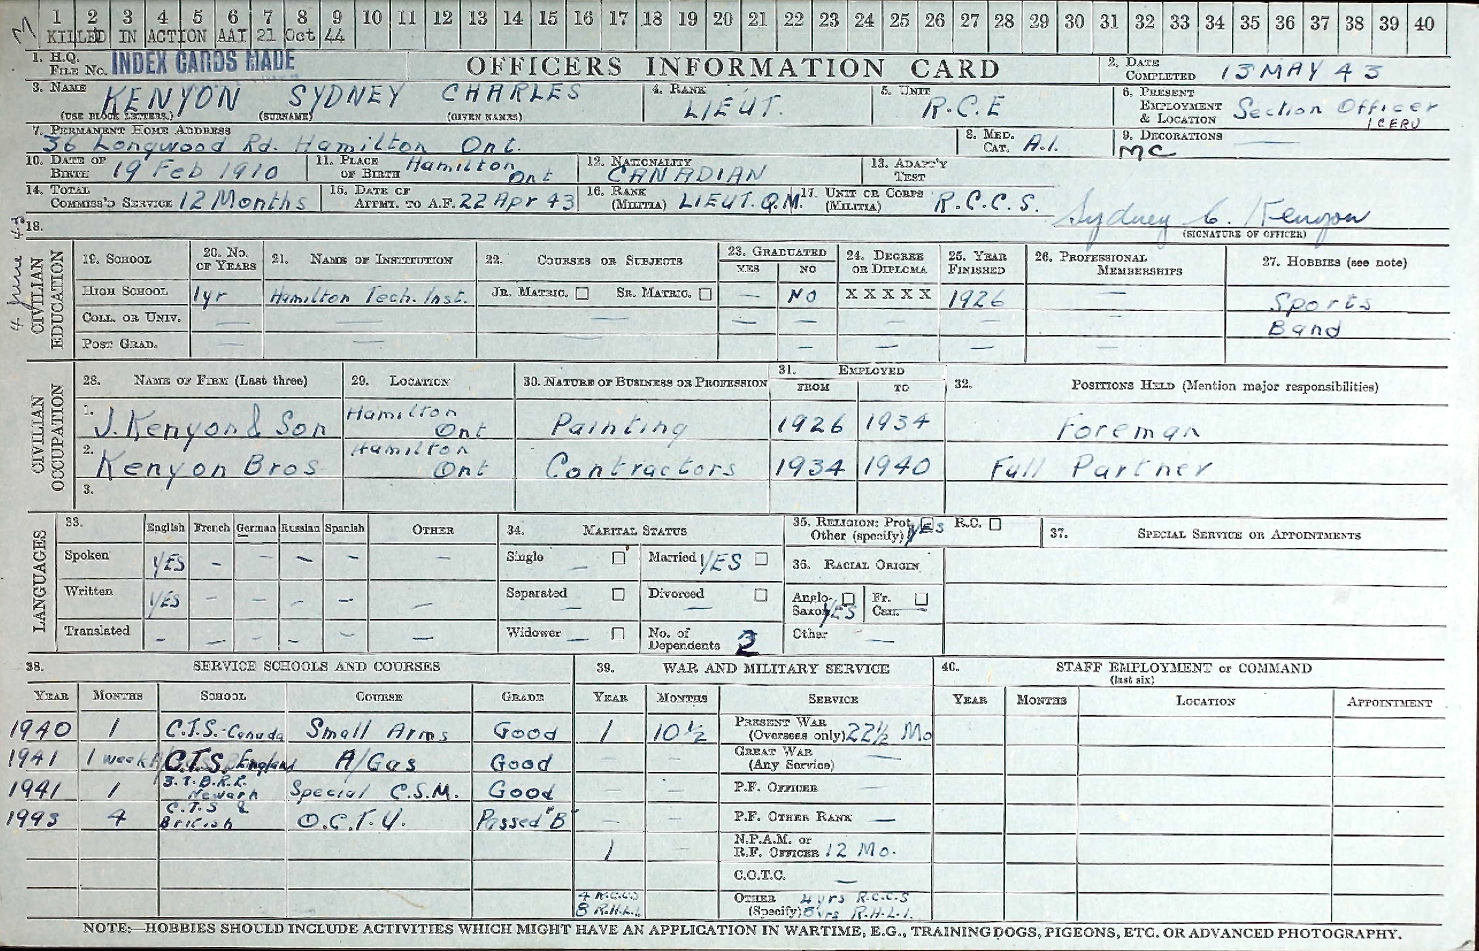 1 2 3 4 5 6 7 8 9 10 11 12 13 14 15 16 17 18 19 20 21 22 23 24 25 26 27 28 29 30 31 32 33 34 35 36 37 38 39 40
M KILLED IN ACTION AAI 21 Oct 44
1. H.Q. FILE NO. INDEX CARDS MADE OFFICERS INFORMATION CARD 2. DATE COMPLETED 13 MAY 43
3. NAME KENYON SYDNEY CHARLES 4. RANK LIEUT. 5. UNIT R.C.E 6. PRESENT EMPLOYMENT & LOCATION Section Officer 1 CERU
(USE BLOCK LETTERS.) (SURNAME) (GIVEN NAMES)
7. PERMANENT HOME ADDRESS 36 Longwood Rd. Hamilton Ont. 8. MED. CAT. A.1. 9. DECORATIONS — MC
10. DATE OF BIRTH 19 Feb 1910 11. PLACE OF BIRTH Hamilton Ont 12. NATIONALITY CANADIAN 13. ADAPT'Y TEST
14. TOTAL COMMISS'D SERVICE 12 Months 15. DATE OF APPMT. TO A.F. 22 Apr 43 16. RANK (MILITIA) LIEUT. Q.M. 17. UNIT OR CORPS (MILITIA) R.C.C.S.
Sydney C. Kenyon
(SIGNATURE OF OFFICER)
18.
4 June 43
CIVILIAN EDUCATION
19. SCHOOL 20. NO. OF YEARS 21. NAME OF INSTITUTION 22. COURSES OR SUBJECTS 23. GRADUATED YES NO 24. DEGREE OR DIPLOMA 25. YEAR FINISHED 26. PROFESSIONAL MEMBERSHIPS 27. HOBBIES (see note)
HIGH SCHOOL 1yr Hamilton Tech. Inst. JR. MATRIC. SR. MATRIC. — NO X X X X X 1926 — Sports
COLL. OR UNIV. — — — — — — — — Band
POST GRAD. — — —
CIVILIAN OCCUPATION
28. NAME OF FIRM (Last three) 29. LOCATION 30. NATURE OF BUSINESS OR PROFESSION 31. EMPLOYED FROM TO 32. POSITIONS HELD (Mention major responsibilities)
1. J. Kenyon & Son Hamilton Ont Painting 1926 1934 Foreman
2. Kenyon Bros Hamilton Ont Contractors 1934 1940 Full Partner
3.
LANGUAGES
33. English French German Russian Spanish OTHER 34. MARITAL STATUS 35. RELIGION: Prot. YES R.C. Other (specify) 37. SPECIAL SERVICE OR APPOINTMENTS
Spoken YES — — — — — Single — Married YES 36. RACIAL ORIGIN
Written YES — — — — — Separated Divorced — Anglo-Saxon YES Fr. Can. —
Translated — — — — — — Widower — No. of Dependents 2 Other —
38. SERVICE SCHOOLS AND COURSES 39. WAR AND MILITARY SERVICE 40. STAFF EMPLOYMENT or COMMAND (last six)
YEAR MONTHS SCHOOL COURSE GRADE YEAR MONTHS SERVICE YEAR MONTHS LOCATION APPOINTMENT
1940 1 C.T.S.-Canada Small Arms Good 1 10½ PRESENT WAR (Overseas only) 22½ Mo
1941 1 week C.T.S. England A/Gas Good — — GREAT WAR (Any Service) —
1941 1 Newark Special C.S.M. Good — — P.F. OFFICER —
1943 4 C.T.S & British O.C.T.U. Passed "B" — — P.F. OTHER RANK —
1 — N.P.A.M. or R.F. OFFICER 12 Mo.
C.O.T.C. —
4 R.C.C.S 8 R.H.L.I. OTHER (Specify) 4 yrs R.C.C.S 8 yrs R.H.L.I.
NOTE:—HOBBIES SHOULD INCLUDE ACTIVITIES WHICH MIGHT HAVE AN APPLICATION IN WARTIME, E.G., TRAINING DOGS, PIGEONS, ETC. OR ADVANCED PHOTOGRAPHY.